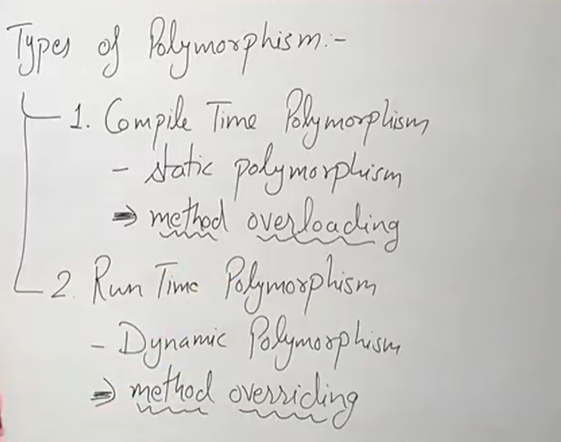 Types of Polymorphism:-
1. Compile Time Polymorphism
- static polymorphism
⇒ method overloading
2. Run Time Polymorphism
- Dynamic Polymorphism
⇒ method overriding